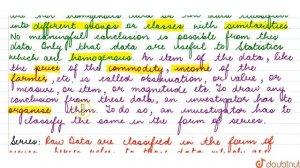 into different groups or classes with similarities.
No meaningful conclusion is possible from these
data. Only that data are useful to Statistics
which are homogenous. An item of the data, like
the prices of the commodity, income of the
farmer, etc, is called observation, or value, or
measure, or item, or magnitude etc. To draw any
conclusion from these data, an investigator has to
organise them. To do so, an investigator has to
classify the same in the form of series.
Series: Raw Data are classified in the form of
doubtnut